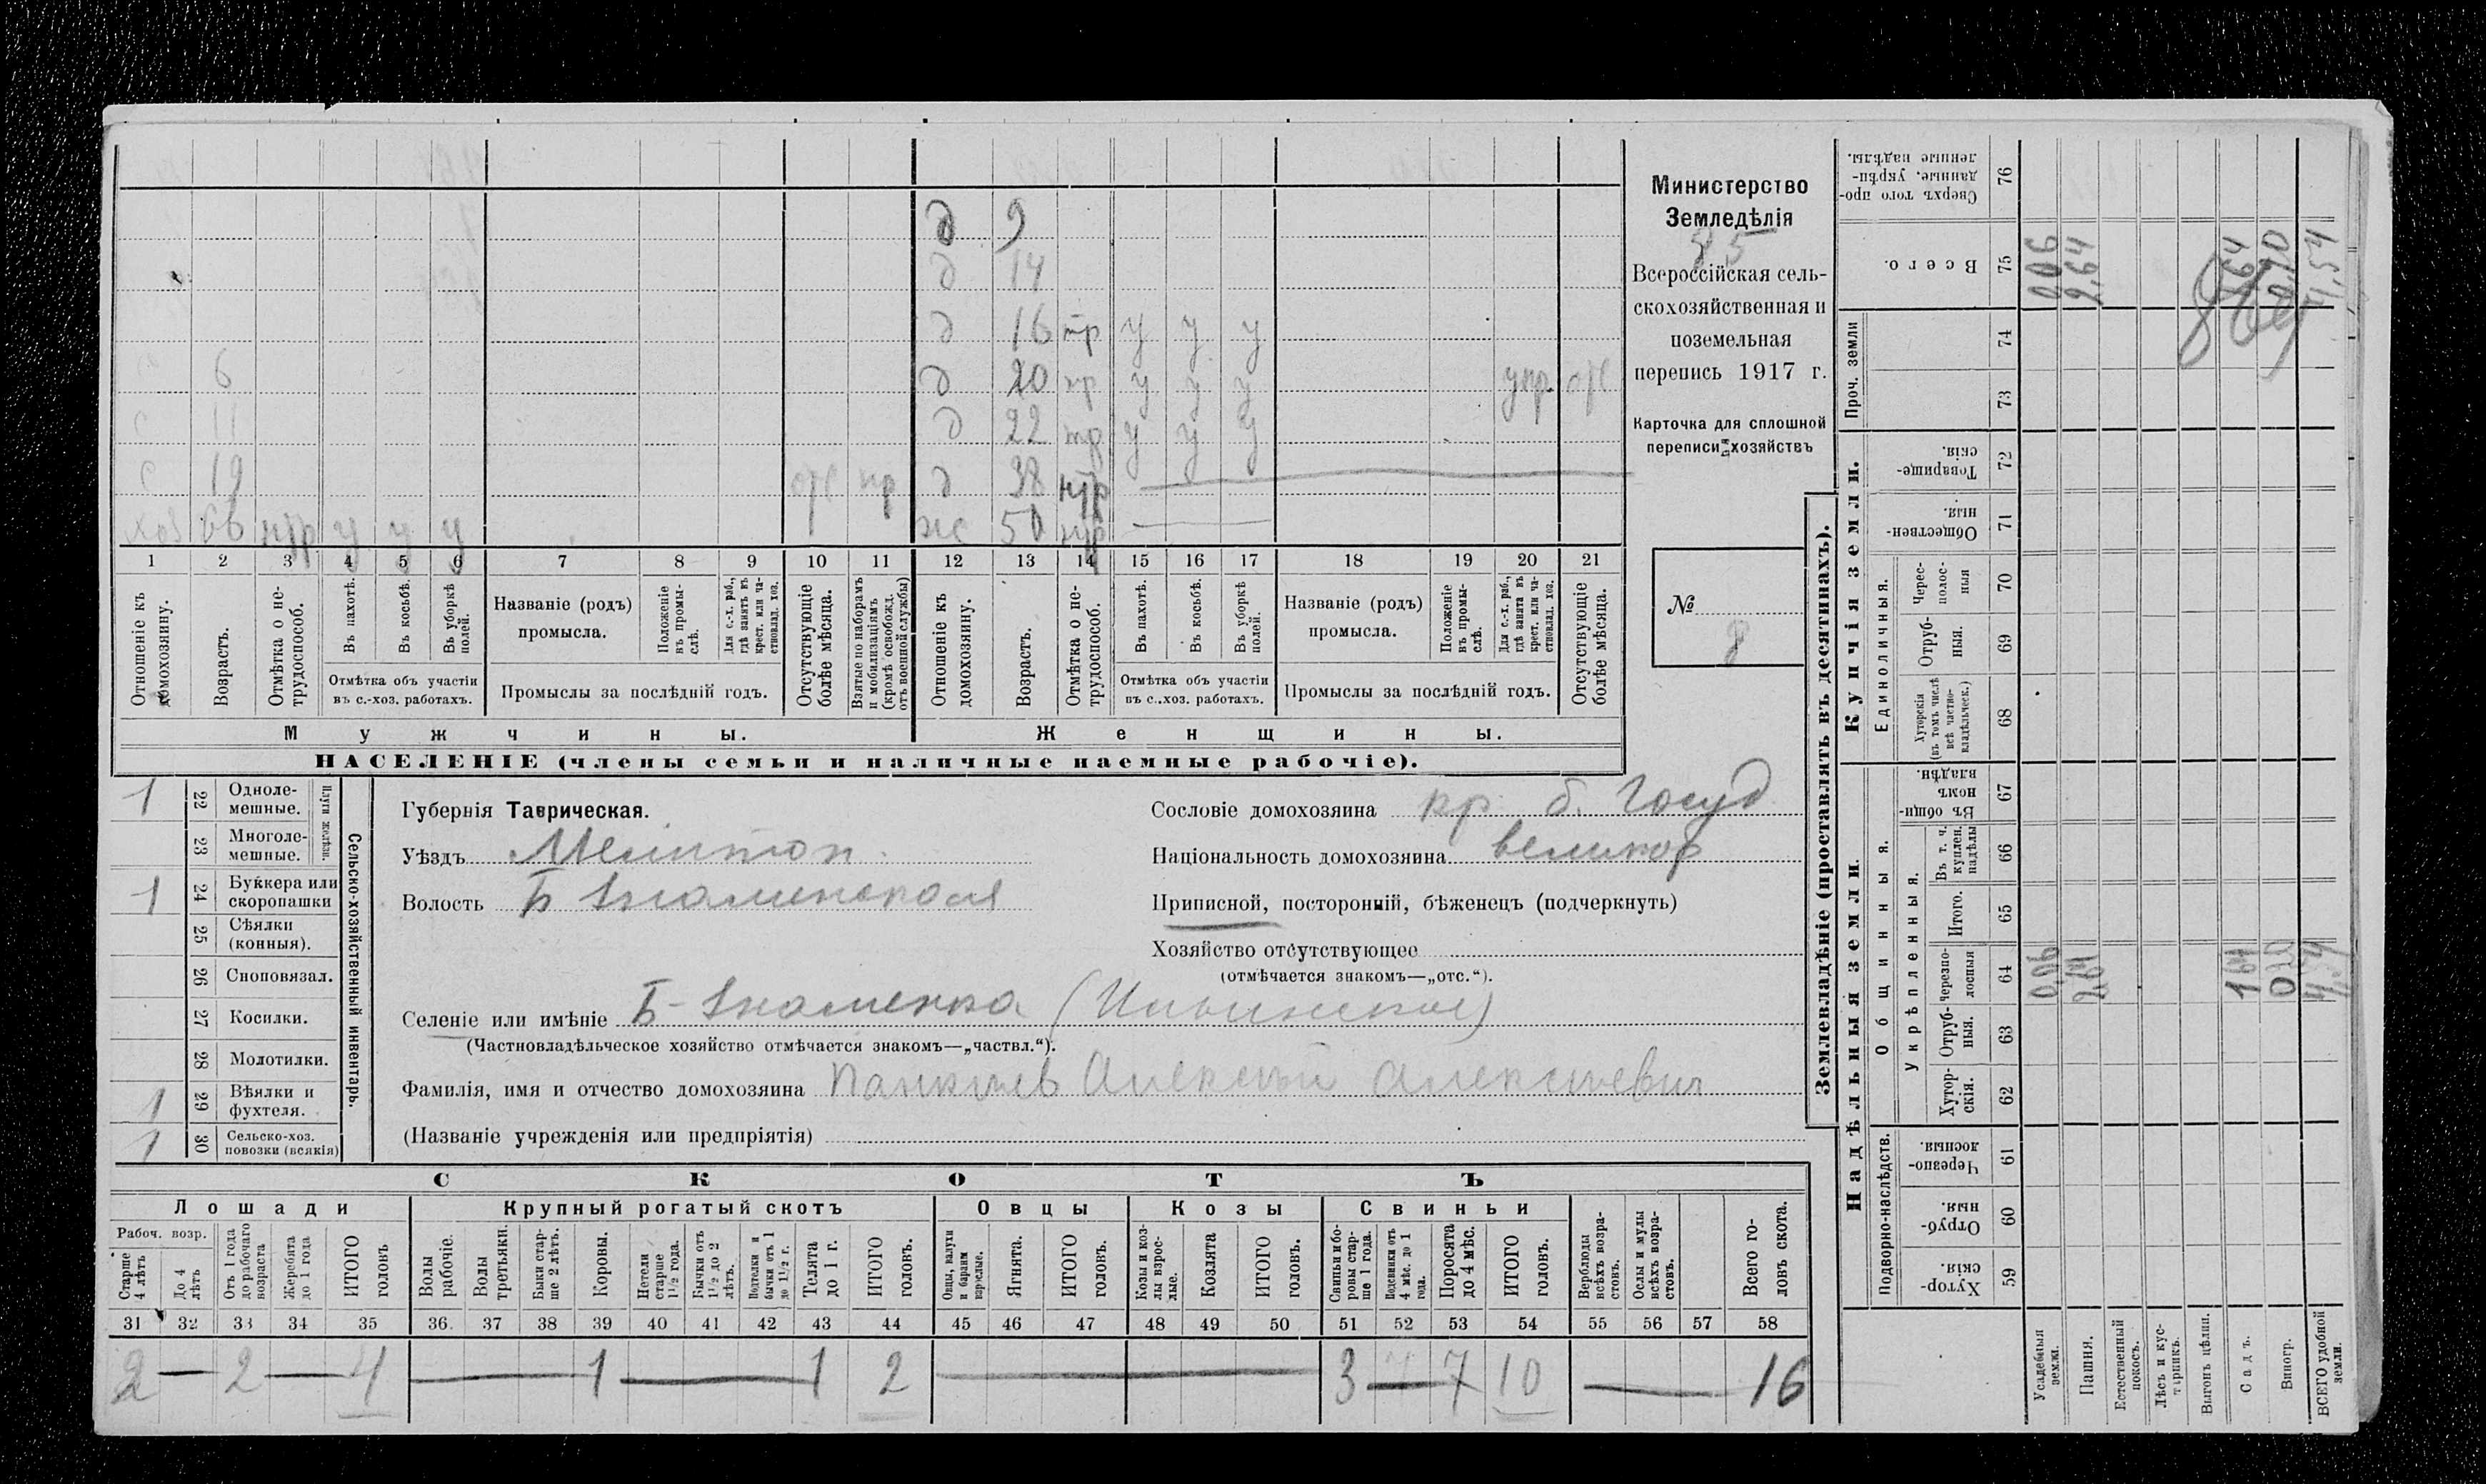 Министерство
Земледѣлія
85
Всероссійская сель-
скохозяйственная и
поземельная
перепись 1917 г.
Карточка для сплошной
переписи хозяйствъ
№
8
д 9
д 14
д 16 тр у у у
6 д 20 у у у упр. отс
с 11 д 22 у у у
с 19 отс д 38
хоз 66 у у у ж 50
1 2 3 4 5 6 7 8 9 10 11 12 13 14 15 16 17 18 19 20 21
Отношеніе къ домохозяину.
Возрастъ.
Отмѣтка о не-трудоспособ.
Въ пахотѣ.
Въ косьбѣ.
Въ уборкѣ полей.
Отмѣтка объ участіи въ с.-хоз. работахъ.
Названіе (родъ) промысла.
Положеніе въ промы-слѣ.
Для с.-х. раб., гдѣ занятъ въ крест. или ча-стновлад. хоз.
Промыслы за послѣдній годъ.
Отсутствующіе болѣе мѣсяца.
Взятые по наборамъ и мобилизаціямъ (кромѣ освобожд. отъ военной службы)
Отношеніе къ домохозяину.
Возрастъ.
Отмѣтка о не-трудоспособ.
Въ пахотѣ.
Въ косьбѣ.
Въ уборкѣ полей.
Отмѣтка объ участіи въ с.-хоз. работахъ.
Названіе (родъ) промысла.
Положеніе въ промы-слѣ.
Для с.-х. раб., гдѣ занята въ крест. или ча-стновлад. хоз.
Промыслы за послѣдній годъ.
Отсутствующіе болѣе мѣсяца.
Мужчины. Женщины.
НАСЕЛЕНІЕ (члены семьи и наличные наемные рабочіе).
Сельско-хозяйственный инвентарь.
Плуги желѣзн.
1 22 Одноле-мешные.
23 Многоле-мешные.
1 24 Буккера или скоропашки
25 Сѣялки (конныя).
26 Сноповязал.
27 Косилки.
28 Молотилки.
1 29 Вѣялки и фухтеля.
1 30 Сельско-хоз. повозки (всякія)
Губернія Таврическая.
Уѣздъ Мелитоп.
Волость Б Знаменская
Сословіе домохозяина кр. б. Госуд
Національность домохозяина великор
Приписной, посторонній, бѣженецъ (подчеркнуть)
Хозяйство отсутствующее
(отмѣчается знакомъ—„отс.“).
Селеніе или имѣніе Б-Знаменка (Ильинское)
(Частновладѣльческое хозяйство отмѣчается знакомъ—„частвл.“).
Фамилія, имя и отчество домохозяина Алексѣй Алексѣевич
(Названіе учрежденія или предпріятія)
СКОТЪ
Лошади Крупный рогатый скотъ Овцы Козы Свиньи
Рабоч. возр.
Старше 4 лѣтъ
До 4 лѣтъ
Отъ 1 года до рабочаго возраста
Жеребята до 1 года
ИТОГО головъ
Волы рабочіе.
Волы третьяки.
Быки стар-ше 2 лѣтъ.
Коровы.
Нетели старше 1½ года.
Бычки отъ 1½ до 2 лѣтъ.
Подтелки и бычки отъ 1 до 1½ г.
Телята до 1 г.
ИТОГО головъ.
Овцы, валухи и бараны взрослые.
Ягнята.
ИТОГО головъ.
Козы и коз-лы взрос-лые.
Козлята
ИТОГО головъ.
Свиньи и бо-ровы стар-ше 1 года.
Подсвинки отъ 4 мѣс. до 1 года.
Поросята до 4 мѣс.
ИТОГО головъ.
Верблюды всѣхъ возра-стовъ.
Ослы и мулы всѣхъ возра-стовъ.
Всего го-ловъ скота.
31 32 33 34 35 36. 37 38 39 40 41 42 43 44 45 46 47 48 49 50 51 52 53 54 55 56 57 58
2 — 2 — 4 — 1 — 1 2 — 3 — 7 10 — 16
Землевладѣніе (проставлять въ десятинахъ).
Надѣльныя земли. Купчія земли. Проч. земли
Подворно-наслѣдств.
Общинныя.
Укрѣпленныя.
Единоличныя.
Хутор-скія. 59
Отруб-ныя. 60
Черезпо-лосныя. 61
Хутор-скія. 62
Отруб-ныя. 63
Черезпо-лосныя 64
Итого. 65
Въ т. ч. куплен. надѣлы 66
Въ общин-номъ владѣн. 67
Хуторскія (въ томъ числѣ всѣ частно-владѣльческ.) 68
Отруб-ныя. 69
Черес-полос-ныя 70
Обществен-ныя. 71
Товарище-скія. 72
73
74
Всего. 75
Сверхъ того про-данные, укрѣп-ленные надѣлы. 76
Усадебныя земли. 0,06 0,06
Пашня. 2,64 2,64
Естественный покосъ.
Лѣсъ и кус-тарникъ.
Выгонъ цѣлин.
Садъ. 1,64 1,64
Виногр. 0,20
ВСЕГО удобной земли. 4,54 4,54